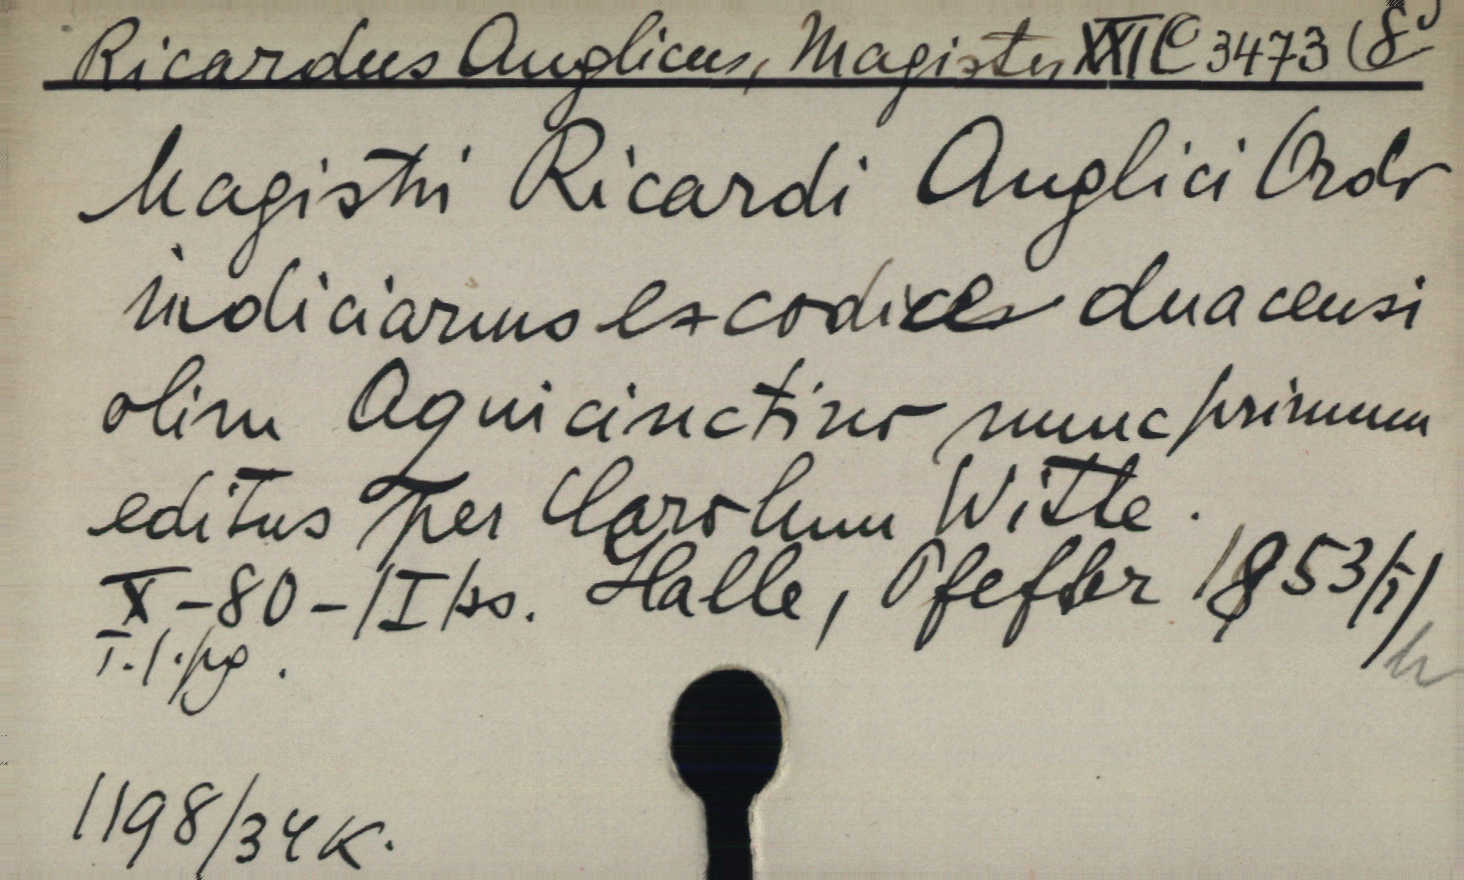 Ricardus Anglicus, Magister XXII C 3473 (8°
Magistri Ricardi Anglici Ordo
iudiciarius ex codice duacensi
olim Aquicinctino nunc primum
editus per Carolum Witte.
X-80-/I/ss. Halle, Pfeffer 1853/I/
T. l. pg.
1198/34K.